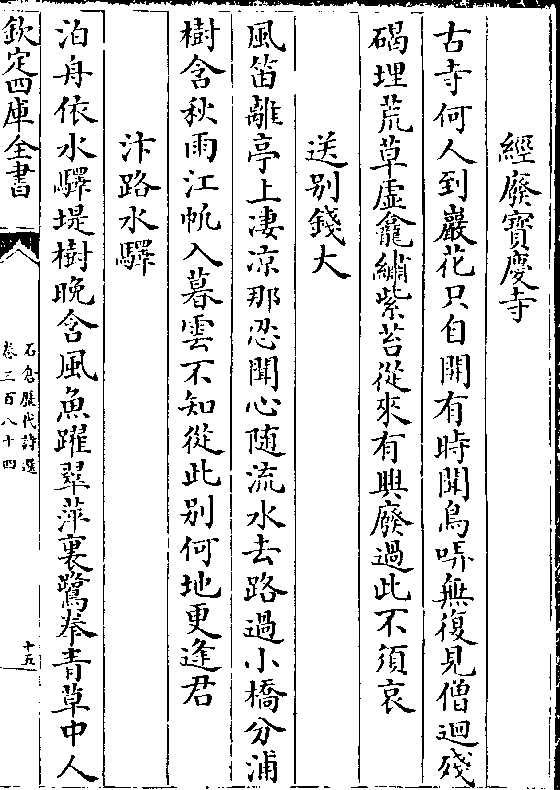 經廢寶慶寺
古寺何人到巖花只自開有時聞鳥哢無復見僧迴殘
碣埋荒草虚龕繡紫苔從來有興廢過此不須哀
送别錢大
風笛離亭上凄凉那忍聞心随流水去路過小橋分浦
樹含秋雨江帆入暮雲不知從此别何地更逢君
汴路水驛
泊舟依水驛堤樹晩含風魚躍翠萍裏鷺拳青草中人
欽定四庫全書
石倉歷代詩選
卷三百八十四
十五